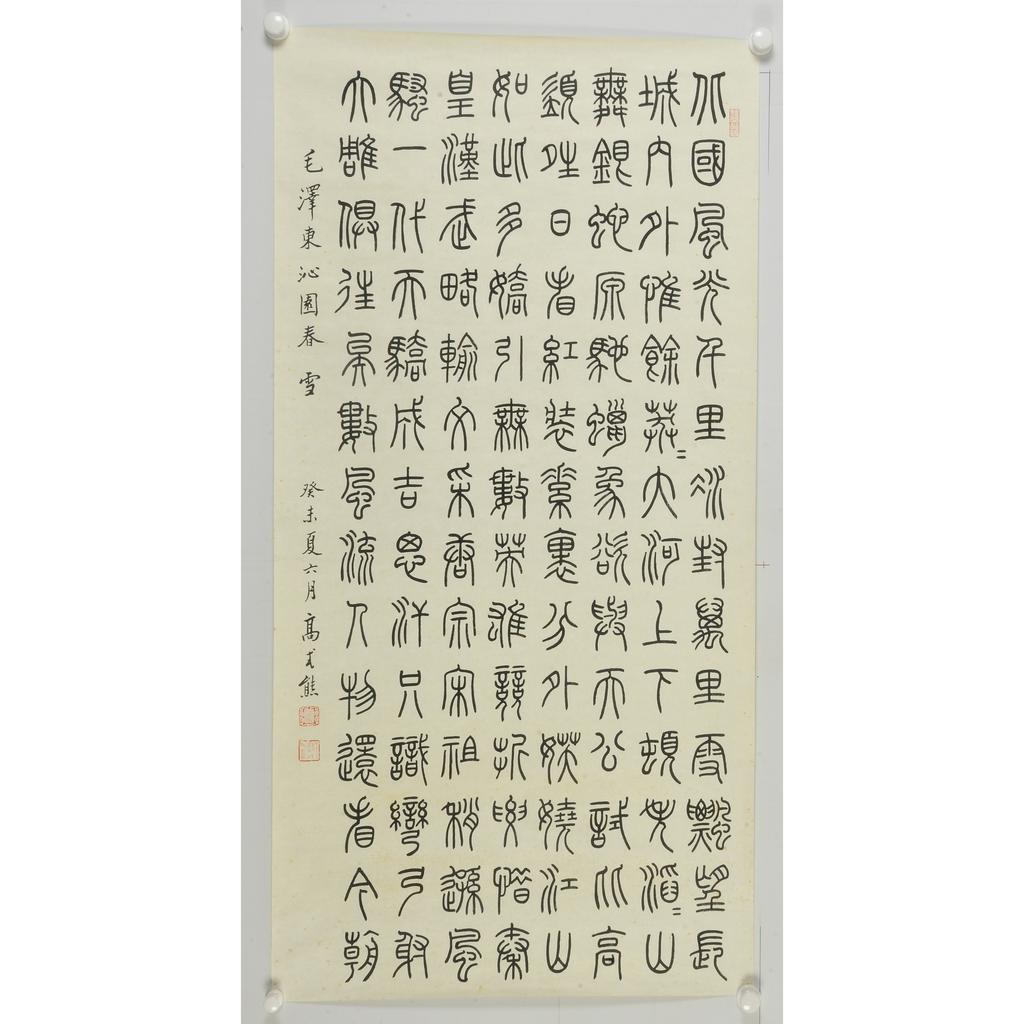 北國風光千里冰封萬里雪飄望長
城內外惟餘莽〻大河上下頓失滔〻山
舞銀蛇原馳蠟象欲與天公試比高
須晴日看紅裝素裹分外妖嬈江山
如此多嬌引無數英雄競折腰惜秦
皇漢武略輸文采唐宗宋祖稍遜風
騷一代天驕成吉思汗只識彎弓射
大雕俱往矣數風流人物還看今朝
毛澤東 沁園春 雪 癸未夏六月 高式熊